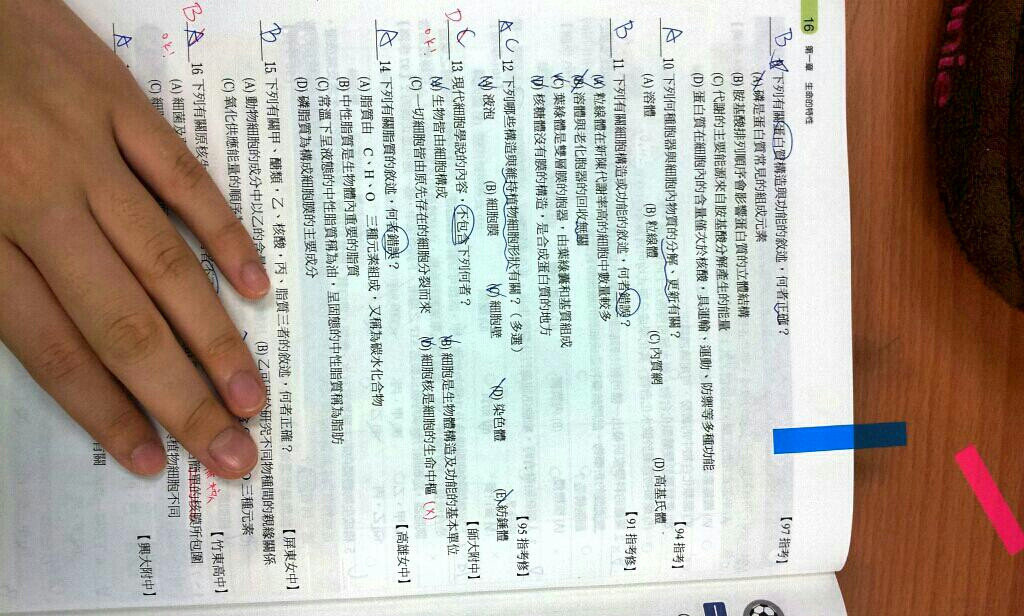 16 第一章 生命的特性
B 9. 下列有關蛋白質構造與功能的敘述，何者正確？ 【97指考】
(A) 磷是蛋白質常見的組成元素
(B) 胺基酸排列順序會影響蛋白質的立體結構
(C) 代謝的主要能源來自胺基酸分解產生的能量
(D) 蛋白質在細胞內的含量僅次於核酸，具運輸、運動、防禦等多種功能
A 10 下列何種胞器與細胞內物質的分解、更新有關？ 【94指考】
(A) 溶體 (B) 粒線體 (C) 內質網 (D) 高基氏體
B 11. 下列有關細胞構造或功能的敘述，何者錯誤？ 【91指考修】
(A) 粒線體在新陳代謝率高的細胞中數量較多
(B) 溶體與老化胞器的回收無關
(C) 葉綠體是雙層膜的胞器，由葉綠囊和基質組成
(D) 核糖體沒有膜的構造，是合成蛋白質的地方
AC 12 下列哪些構造與維持植物細胞形狀有關？（多選） 【95指考修】
(A) 液泡 (B) 細胞膜 (C) 細胞壁 (D) 染色體 (E) 紡錘體
D C 13 現代細胞學說的內容，不包含下列何者？ 【師大附中】
OK! (A) 生物皆由細胞構成 (B) 細胞是生物體構造及功能的基本單位
(C) 一切細胞皆由原先存在的細胞分裂而來 (D) 細胞核是細胞的生命中樞 (X)
A 14 下列有關脂質的敘述，何者錯誤？ 【高雄女中】
(A) 脂質由 C、H、O 三種元素組成，又稱為碳水化合物
(B) 中性脂質是生物體內重要的脂質
(C) 常溫下呈液態的中性脂質稱為油，呈固態的中性脂質稱為脂肪
(D) 磷脂質為構成細胞膜的主要成分
B 15 下列有關甲、醣類，乙、核酸，丙、脂質三者的敘述，何者正確？ 【屏東女中】
(A) 動物細胞的成分中以乙的含 (B) 乙可用於研究不同物種間的親緣關係
(C) 氧化供應能量的順序 O三種元素
B A 16 下列有關原核生 【竹東高中】
OK! (A) 細菌及 簡單的核膜所包圍
(C) 細 植物細胞不同
A 【興大附中】
有關